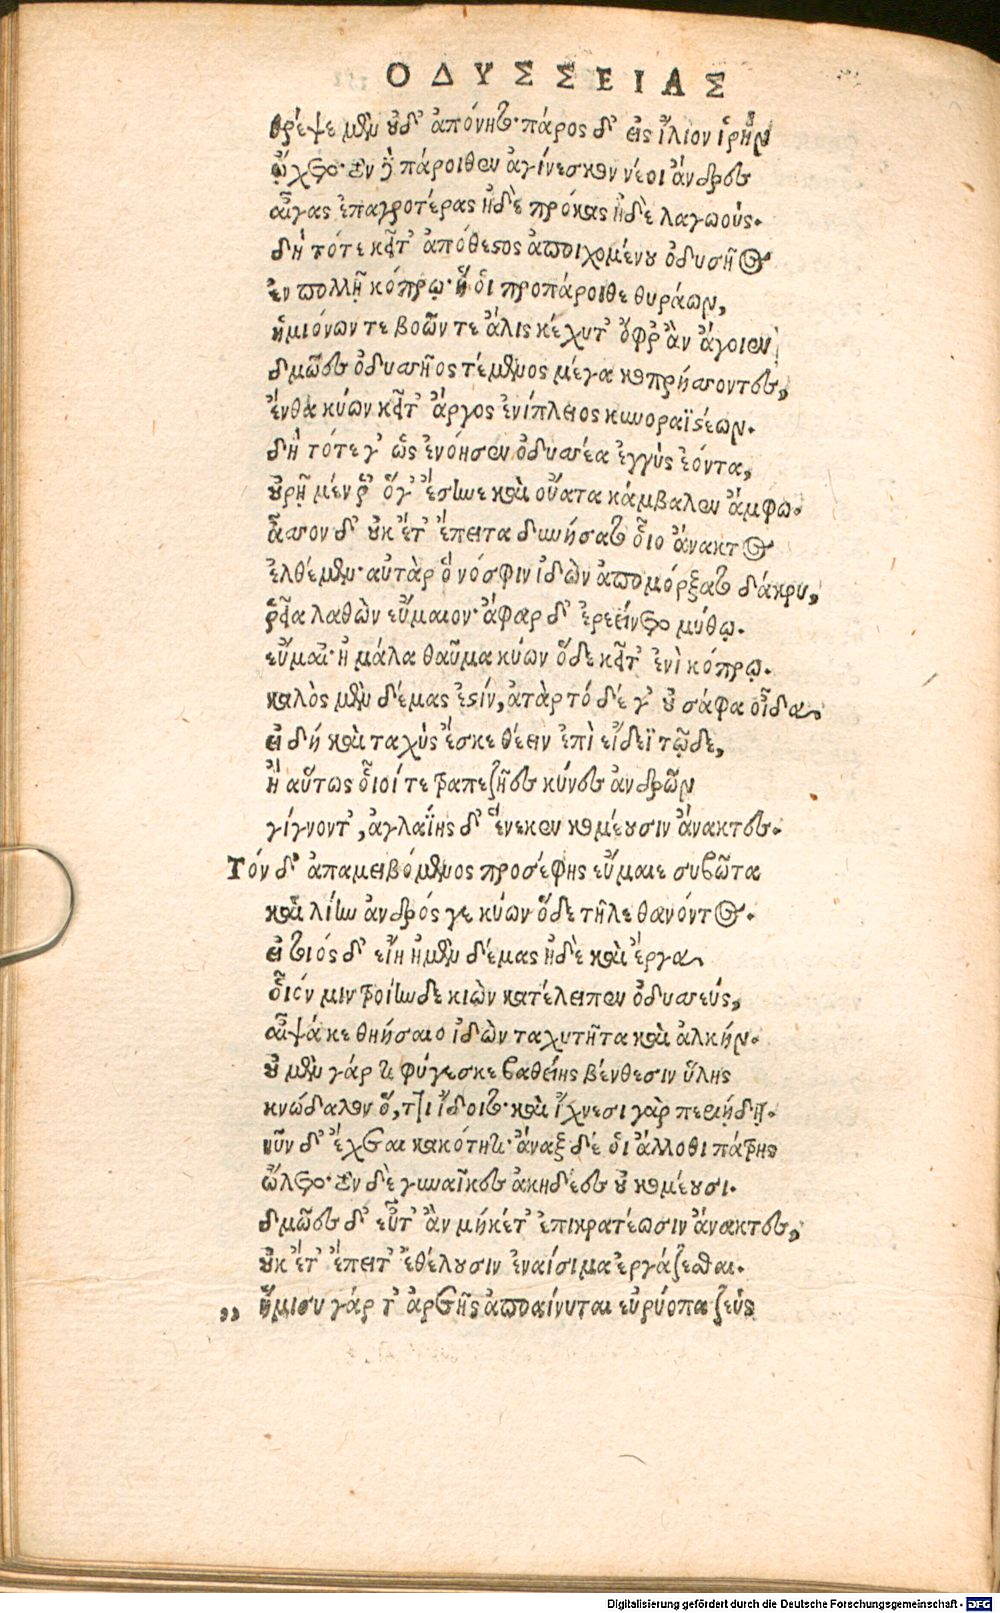 ΟΔΥΣΣΕΙΑΣ
θρέψε μὲν οὐδ' ἀπόνητο· πάρος δ' εἰς ἴλιον ἱρὴν
ᾤχετο· τὸν δὴ πάροιθεν ἀγίνεσκον νέοι ἄνδρες
αἶγας ἐπαγροτέρας ἠδὲ πρόκας ἠδὲ λαγωούς.
δὴ τότε κεῖτ' ἀπόθεστος ἀποιχομένου ὀδυσῆος
ἐν πολλῇ κόπρῳ· ἥ οἱ προπάροιθε θυράων,
ἡμιόνων τε βοῶν τε ἅλις κέχυτ' ὄφρ' ἂν ἄγοιεν
δμῶες ὀδυσσῆος τέμενος μέγα κοπρήσσοντες,
ἔνθα κύων κεῖτ' ἄργος ἐνίπλειος κυνοραϊστέων.
δὴ τότε γ' ὡς ἐνόησεν ὀδυσσέα ἐγγὺς ἐόντα,
οὐρῇ μέν ῥ' ὅγ' ἔσηνε καὶ οὔατα κάμβαλεν ἄμφω.
ἆσσον δ' οὐκ ἔτ' ἔπειτα δυνήσατο οἷο ἄνακτος
ἐλθέμεν· αὐτὰρ ὁ νόσφιν ἰδὼν ἀπομόρξατο δάκρυ,
ῥεῖα λαθὼν εὔμαιον· ἄφαρ δ' ἐρεείνετο μύθῳ.
εὔμαι' ἦ μάλα θαῦμα κύων ὅδε κεῖτ' ἐνὶ κόπρῳ.
καλὸς μὲν δέμας ἐστίν, ἀτὰρ τό δέ γ' οὐ σάφα οἶδα,
εἰ δή καὶ ταχὺς ἔσκε θέειν ἐπὶ εἴδεϊ τῷδε,
ἢ αὕτως οἷοί τε τραπεζῆες κύνες ἀνδρῶν
γίγνοντ', ἀγλαΐης δ' ἕνεκεν κομέουσιν ἄνακτες.
Τόν δ' ἀπαμειβόμενος προσέφης εὔμαιε συβῶτα
καὶ λίην ἀνδρός γε κύων ὅδε τῆλε θανόντος.
εἰ τοιός δ' εἴη ἠμὲν δέμας ἠδὲ καὶ ἔργα
οἷόν μιν τροίηνδε κιὼν κατέλειπεν ὀδυσσεύς,
αἶψά κε θηήσαιο ἰδὼν ταχυτῆτα καὶ ἀλκήν.
οὐ μὲν γάρ τι φύγεσκε βαθείης βένθεσιν ὕλης
κνώδαλον ὅ,ττι ἴδοιτο· καὶ ἴχνεσι γὰρ περιῄδη.
νῦν δ' ἔχεται κακότητι· ἄναξ δέ οἱ ἄλλοθι πάτρης
ὤλετο· τὸν δὲ γυναῖκες ἀκηδέες οὐ κομέουσι.
δμῶες δ' εὖτ' ἂν μήκέτ' ἐπικρατέωσιν ἄνακτες,
οὐκ ἔτ' ἔπειτ' ἐθέλουσιν ἐναίσιμα ἐργάζεσθαι.
,, ἥμισυ γάρ τ' ἀρετῆς ἀποαίνυται εὐρύοπα ζεὺς
Digitalisierung gefördert durch die Deutsche Forschungsgemeinschaft - DFG